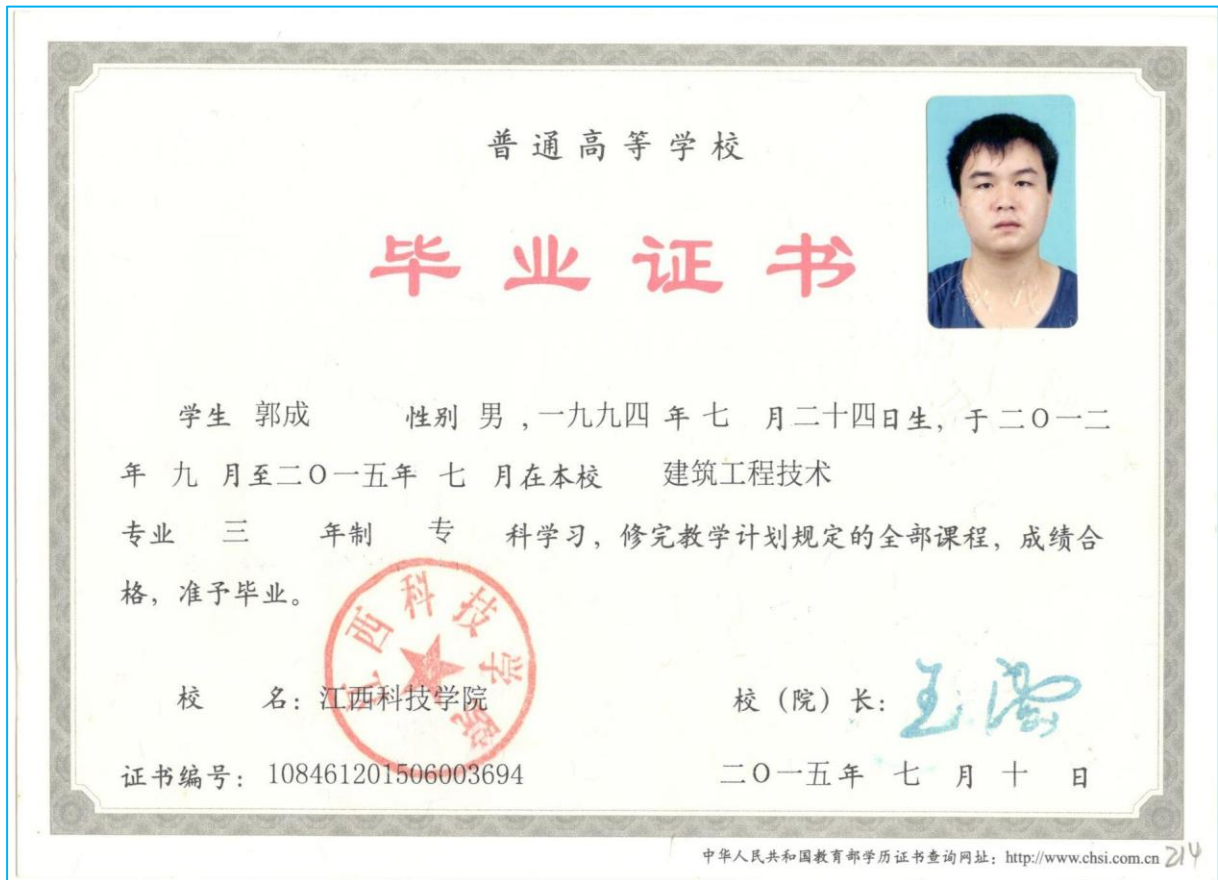 普通高等学校
毕业证书
学生 郭成 性别 男 ,一九九四 年 七 月二十四日生, 于 二〇一二
年 九 月至二〇一五年 七 月在本校 建筑工程技术
专业 三 年制 专 科学习, 修完教学计划规定的全部课程, 成绩合
格, 准予毕业。
江西科技学院
校 名: 江西科技学院 校 (院) 长:
证书编号: 108461201506003694 二〇一五年 七 月 十 日
中华人民共和国教育部学历证书查询网址: http://www.chsi.com.cn 214